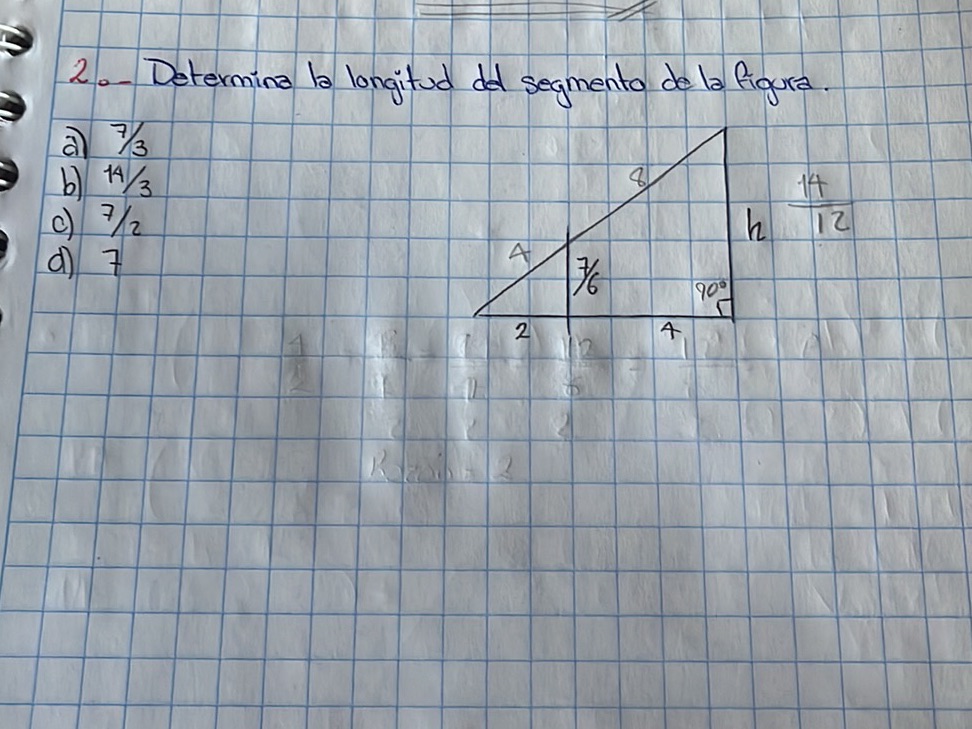 2.- Determina la longitud del segmento de la figura.
a) 7/3
b) 14/3
c) 7/2
d) 7
8
14/12
h
4
7/6
90°
2
4